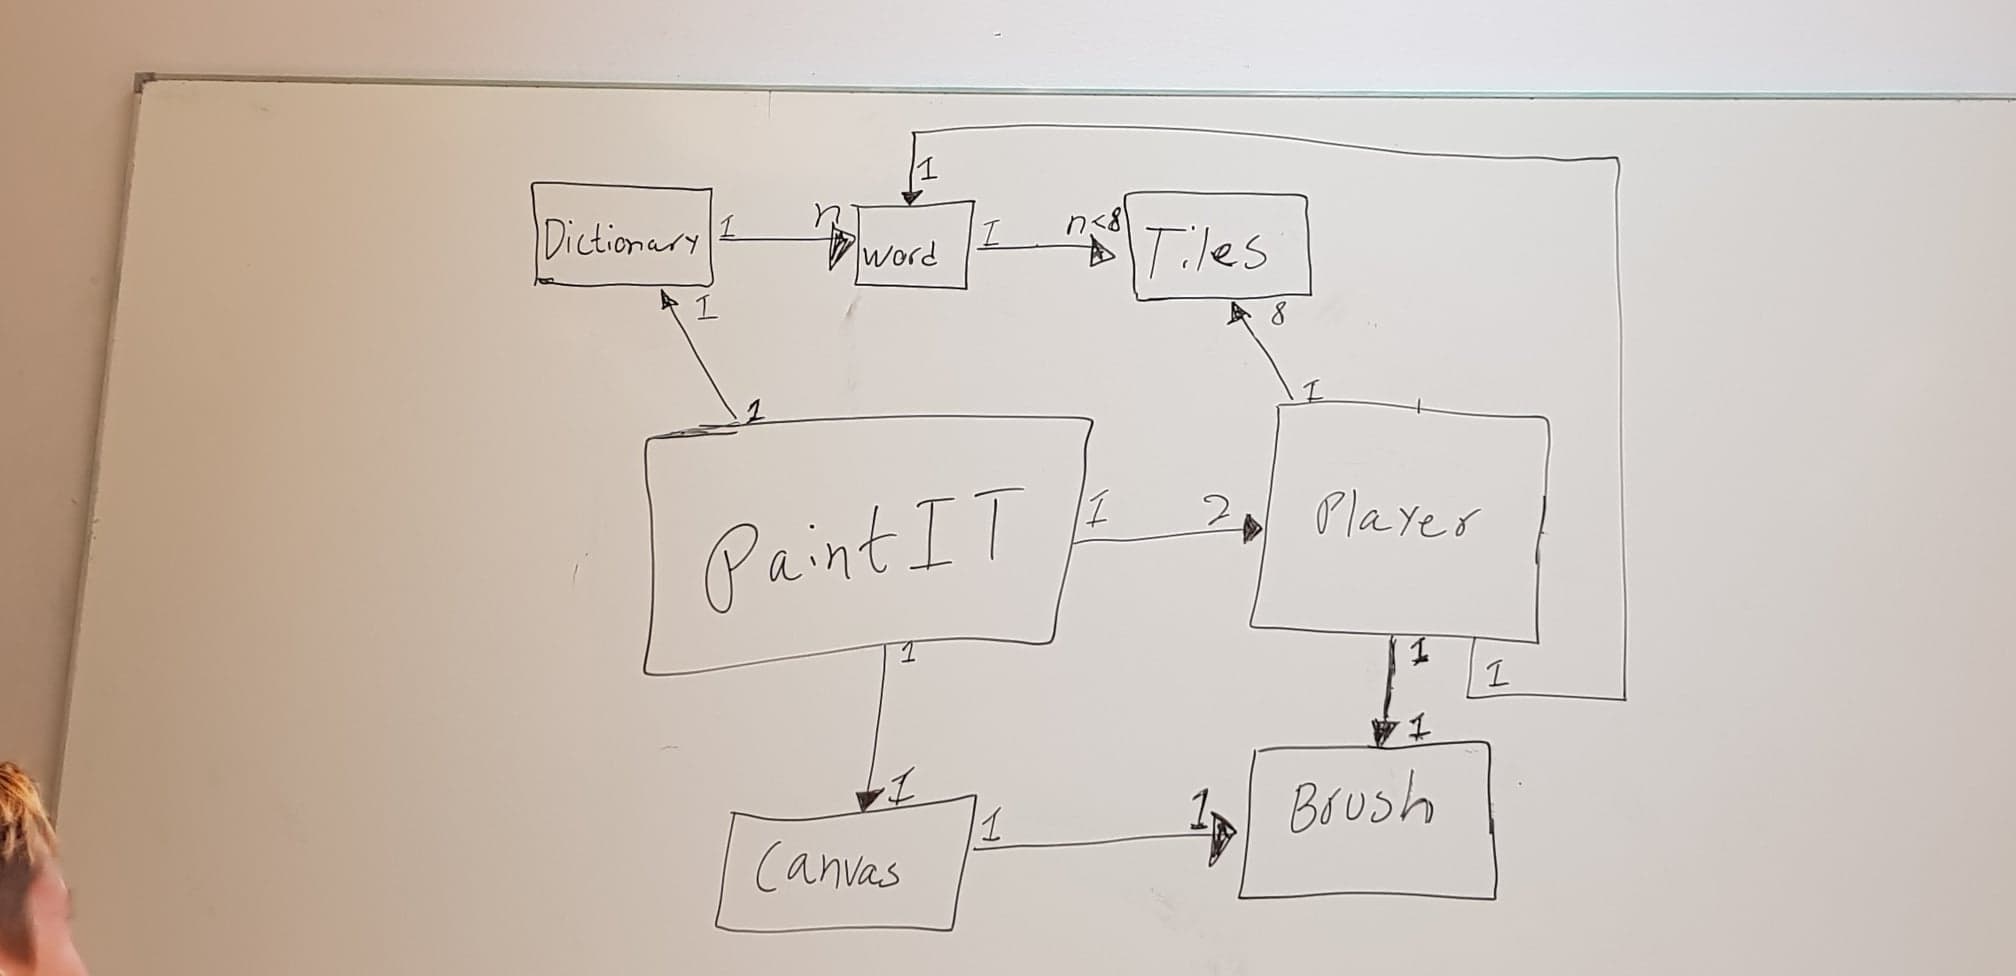 1
Dictionary 1 n word 1 n<8 Tiles
1 8
1 1
PaintIT 1 2 Player
1 1 1
1 1
Canvas 1 1 Brush